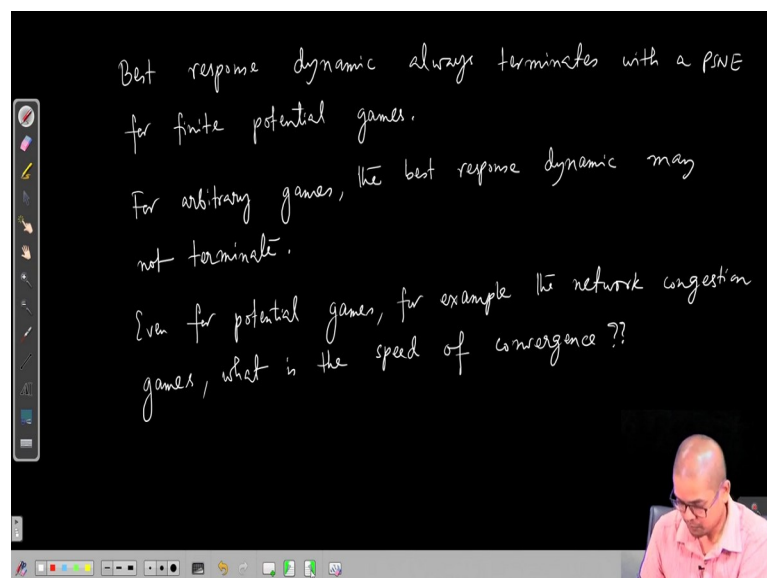 Best response dynamic always terminates with a PSNE
for finite potential games.
For arbitrary games, the best response dynamic may
not terminate.
Even for potential games, for example the network congestion
games, what is the speed of convergence ??